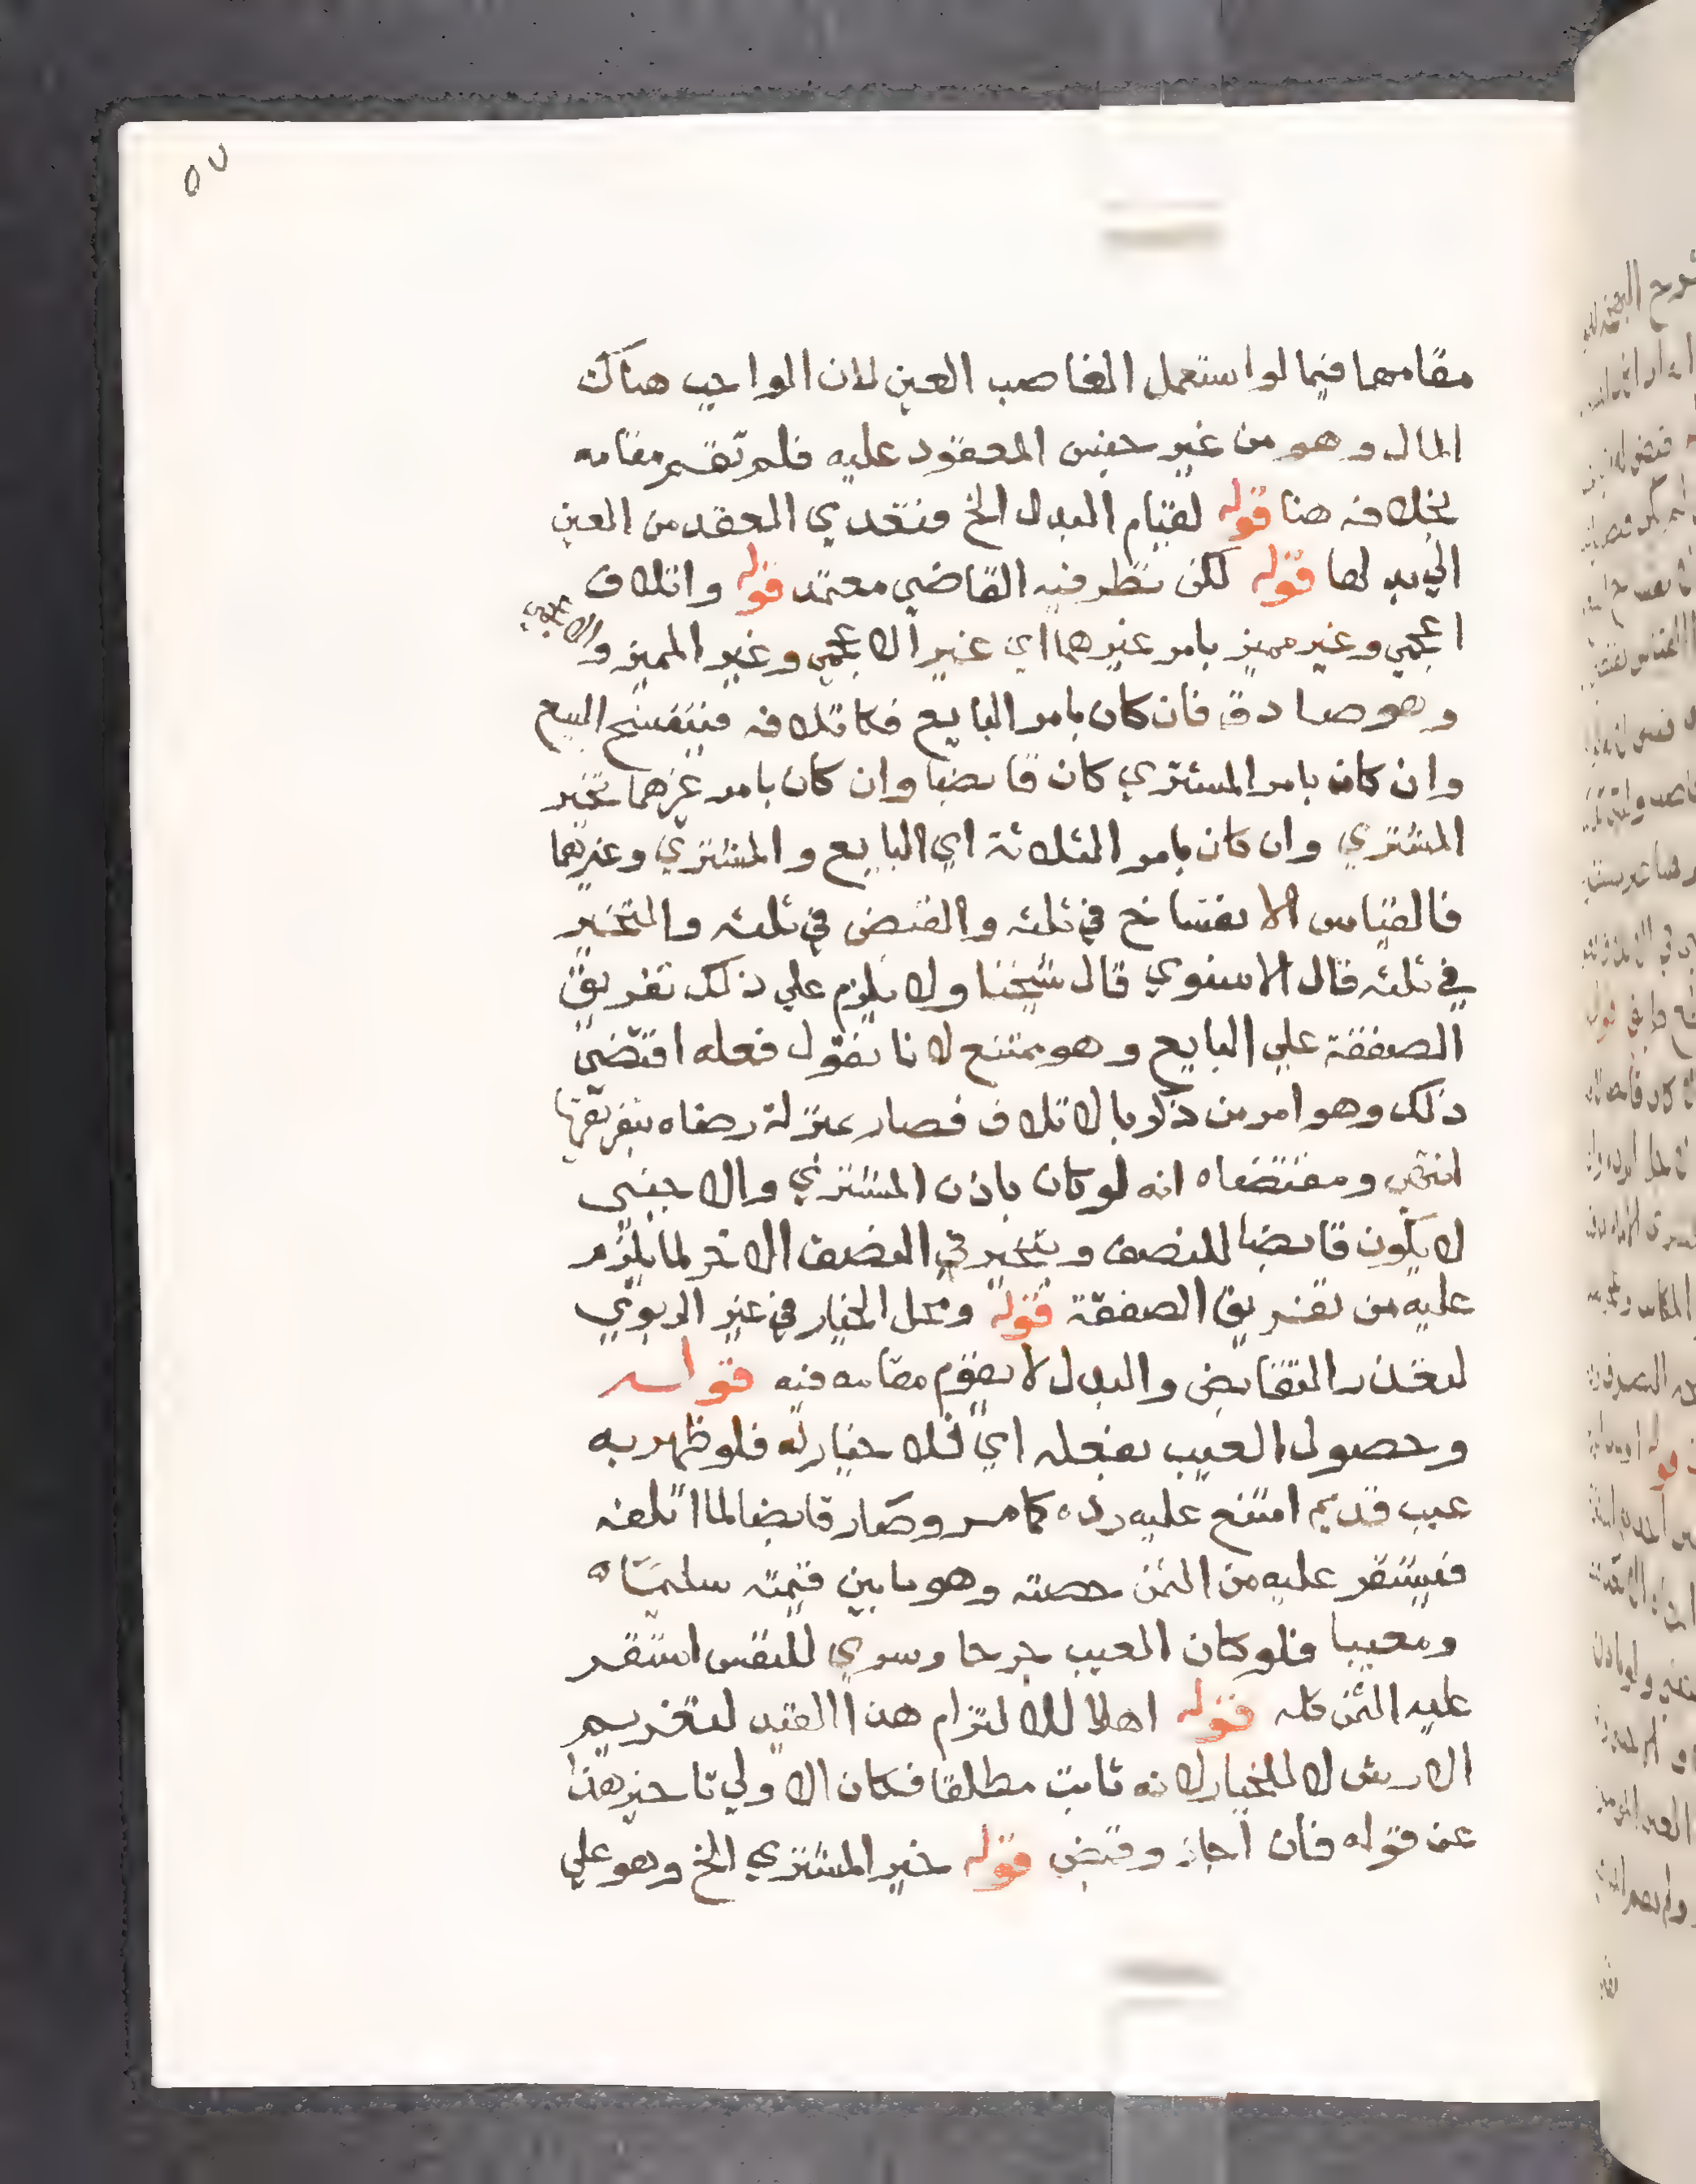 ٥٧
مقامها فيما لو استعمل الغاصب العين لان الواجب هناك
المال وهو من غير جنس المعقود عليه فلم تقم مقامه
بخلافه هنا قوله لقيام البدل الخ فتعدي العقد من العين
الي بدلها قوله لكن نظر فيه القاضي معتمد قوله واتلاف
اعجمي وغير مميز بامر غيرهما اي غير الاعجمي وغير المميز والاعجمي
وهو صادق فان كان بامر البايع فكاتلافه فينفسخ البيع
وان كان بامر المشتري كان قابضا وان كان بامر غيرهما تخير
المشتري وان كان بامر الثلاثة اي البايع والمشتري وغيرهما
فالقياس الانفساخ في ثلثه والقبض في ثلثه والتخير
في ثلثه قال الاسنوي قال شيخنا ولا يلزم علي ذلك تفريق
الصفقة علي البايع وهو ممتنع لانا نقول فعله اقتضي
ذلك وهو امر من ذكر بالاتلاف فصار بمنزلة رضاه بتفريقها
انتهي ومقتضاه انه لو كان باذن المشتري والاجنبي
لا يكون قابضا للنصف ويتخير في النصف الاخر لما يلزم
عليه من تفريق الصفقة قوله ومحل الخيار في غير الربوي
لتعذر التقابض والبدل لا يقوم مقامه فيه قوله
وحصول العيب بفعله اي فلا خيار له فلو ظهر به
عيب قديم امتنع عليه رده كما مر وصار قابضا لما اتلفه
فيستقر عليه من الثمن حصته وهو ما بين قيمته سليما
ومعيبا فلو كان العيب جرحا وسري للنفس استقر
عليه الثمن كله قوله اهلا للالتزام هذا القيد لتغريم
الارش لا للخيار لانه ثابت مطلقا فكان الاولي تاخير هذا
عن قوله فان اجاز وقبض قوله خير المشتري الخ وهو علي